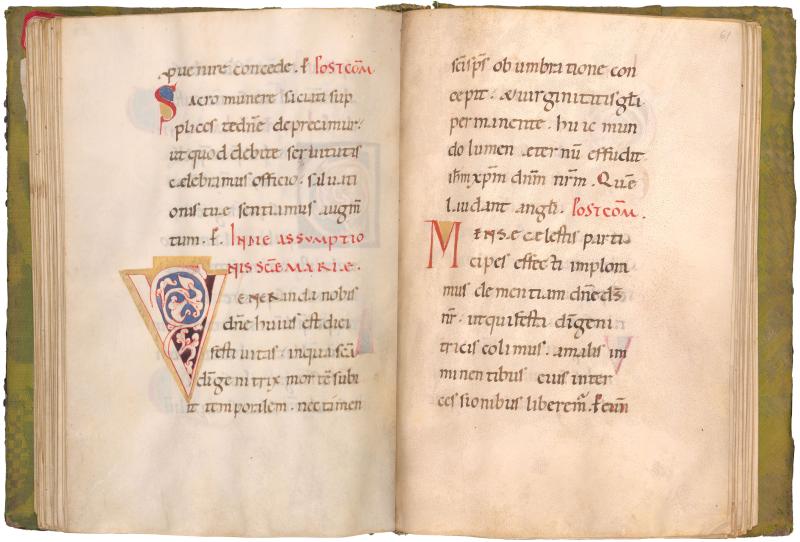 puenire concede. ꝑ Postcōm
Sacro munere saciati sup
plices tedn̄e deprecimur.
ut quod debite seruitutis
celebramus officio. saluati
onis tue sentiamus augm̄
tum. ꝑ. In ne assumptio
nis scē Marie.
Veneranda nobis
dn̄e huius est diei
festiuitas. inqua scā
dī genitrix mortē subi
it temporalem. nec tamen
61
sc̄i sp̄s obumbratione con
cepit. & uirginitatis gl̄a
permanente. huic mun
do lumen eternū effudit
ih̄m xp̄m dn̄m nr̄m. Quē
laudant angli. Postcōm.
Mense celestis parti
cipes effecti implora
mus clementiam dn̄e dˢ̄
nr̄. ut qui festa dī geni
tricis colimus. a malis im
minentibus eius inter
cessionibus liberem̄. ꝑ eun̄